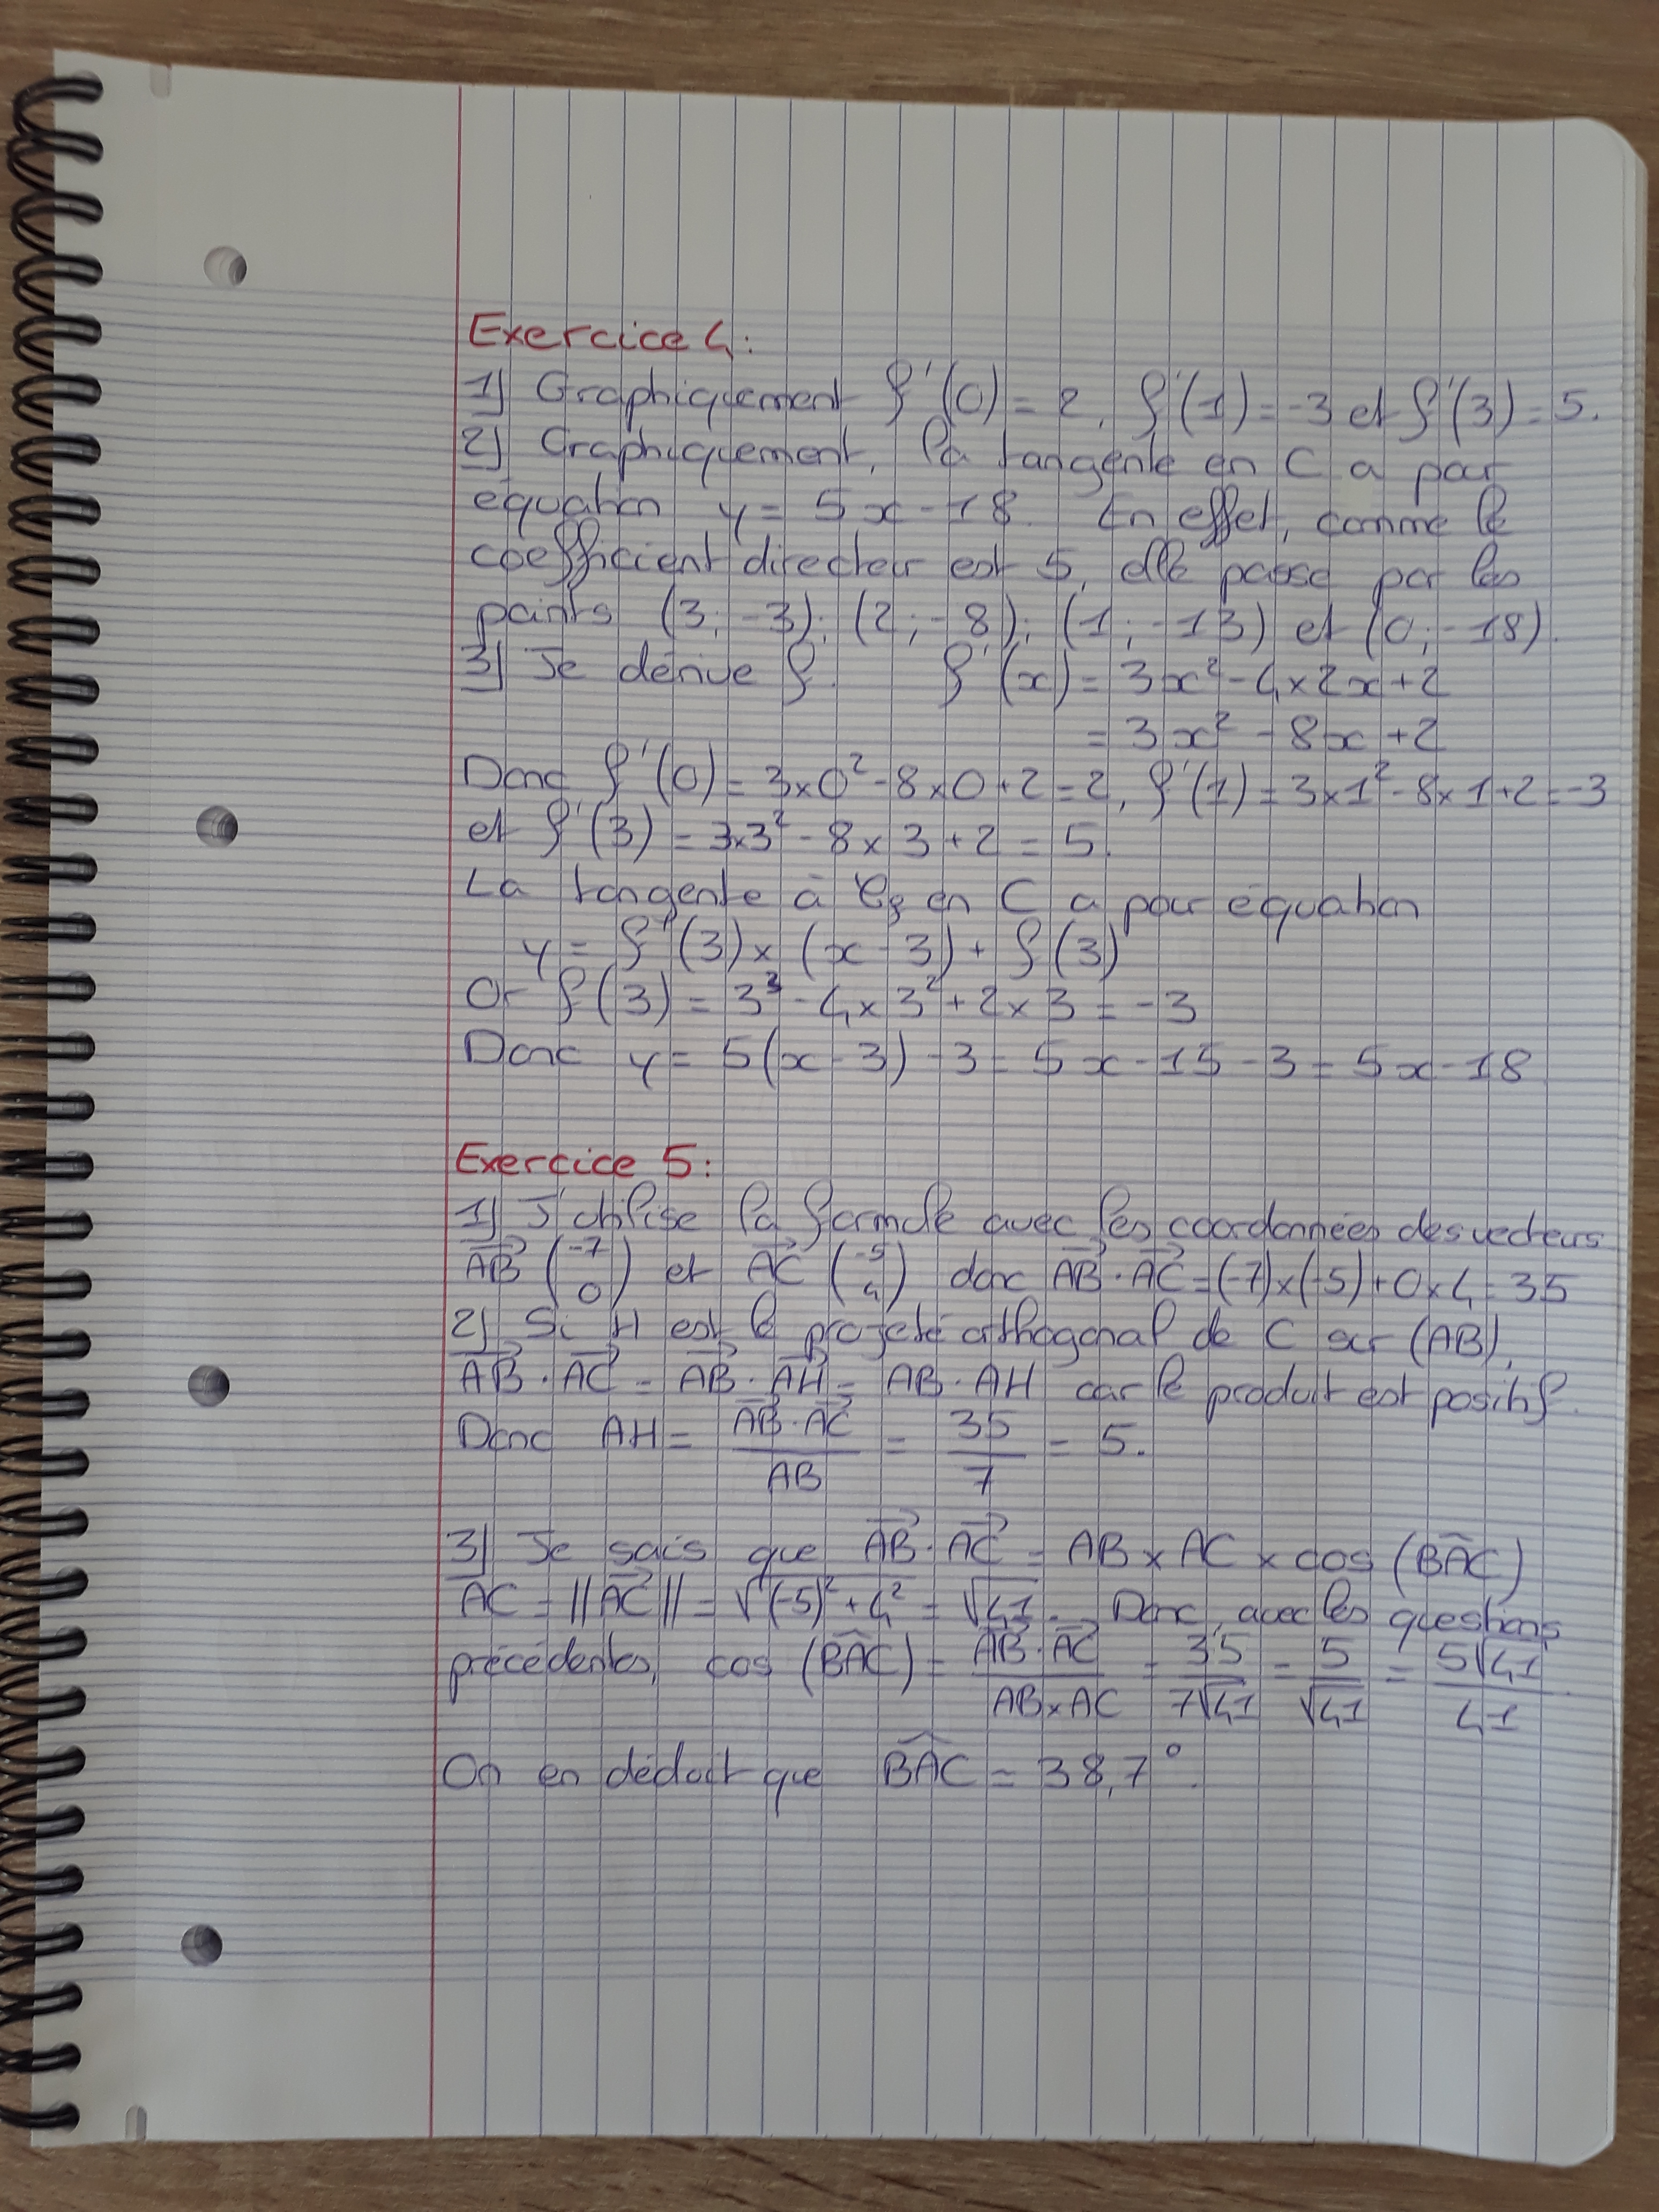 Exercice 4:
1) Graphiquement f'(0) = 2, f'(1) = -3 et f'(3) = 5.
2) Graphiquement, la tangente en C a pour
équation y = 5x - 18. En effet, comme le
coefficient directeur est 5, elle passe par les
points (3; -3); (2; -8); (1; -13) et (0; -18).
3) Je dérive f. f'(x) = 3x² - 4×2x + 2
= 3x² - 8x + 2
Donc f'(0) = 3×0² - 8×0 + 2 = 2, f'(1) = 3×1² - 8×1 + 2 = -3
et f'(3) = 3×3² - 8×3 + 2 = 5.
La tangente à Cf en C a pour équation
y = f'(3) × (x - 3) + f(3)
Or f(3) = 3³ - 4×3² + 2×3 = -3
Donc y = 5(x - 3) - 3 = 5x - 15 - 3 = 5x - 18
Exercice 5:
1) J'utilise la formule avec les coordonnées des vecteurs
AB⃗ (-7 0) et AC⃗ (-5 4) donc AB⃗ · AC⃗ = (-7)×(-5) + 0×4 = 35
2) Si H est le projeté orthogonal de C sur (AB),
AB⃗ · AC⃗ = AB⃗ · AH⃗ = AB · AH car le produit est positif.
Donc AH = AB⃗ · AC⃗ / AB = 35/7 = 5.
3) Je sais que AB⃗ · AC⃗ = AB × AC × cos (BAC^)
AC = ||AC⃗|| = √((-5)² + 4²) = √41. Donc, avec les questions
précédentes, cos (BAC^) = AB⃗ · AC⃗ / AB×AC = 35/7√41 = 5/√41 = 5√41/41
On en déduit que BAC^ = 38,7°.